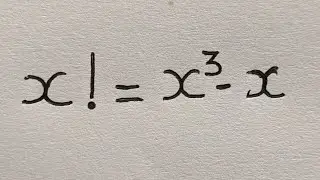 x! = x³ - x